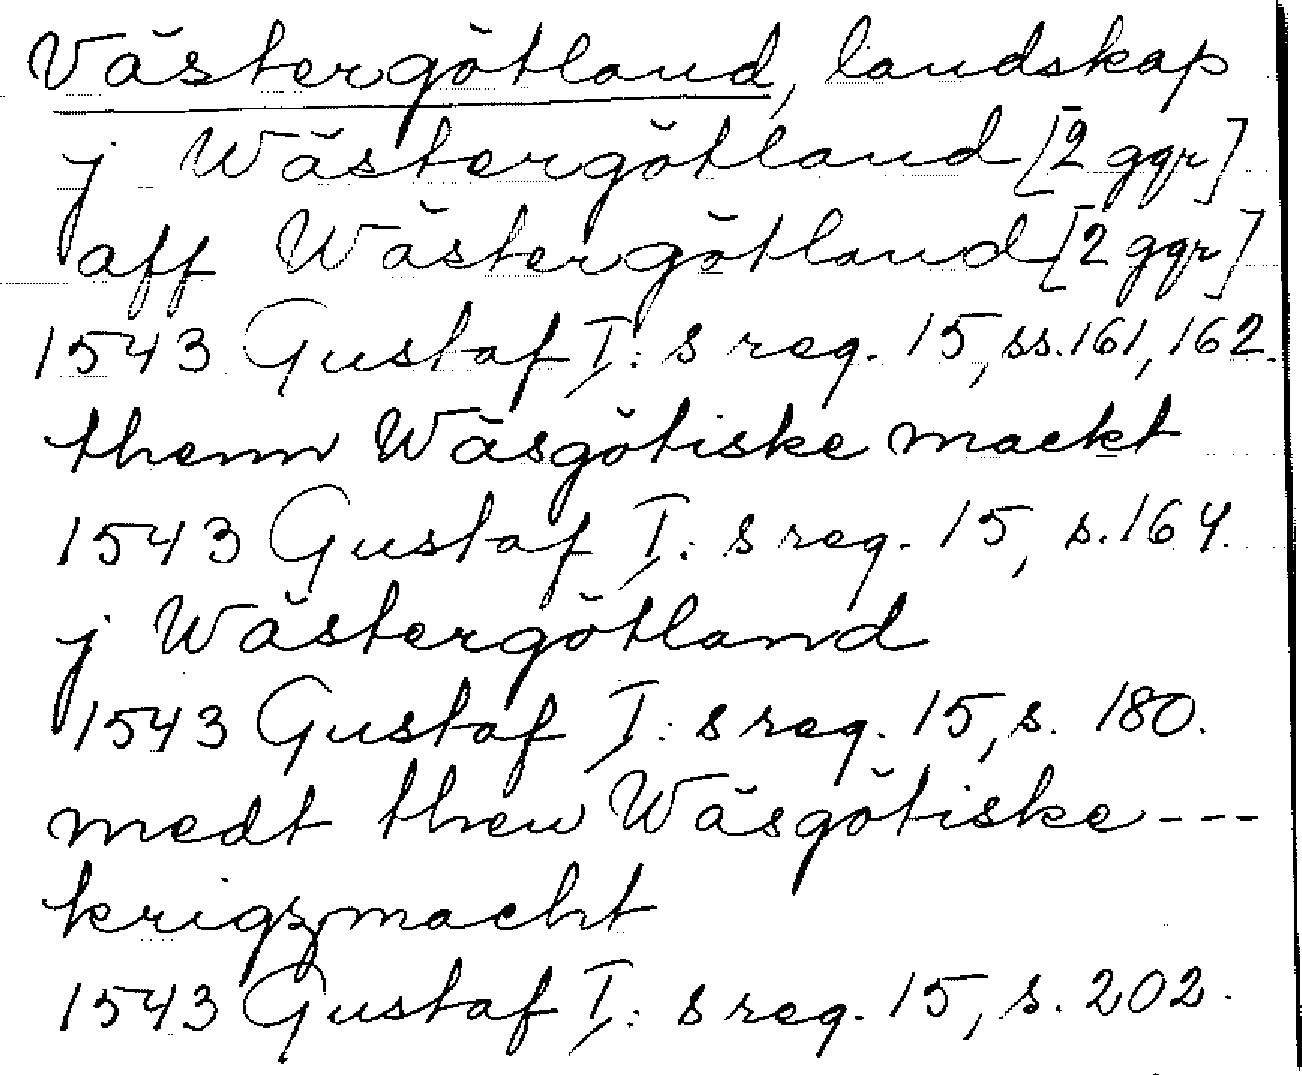 Västergötland, landskap
j Wästergötland [2 ggr]
aff Wästergötland [2 ggr]
1543 Gustaf I:s reg. 15, ss. 161, 162.
thenn Wäsgötiske mackt
1543 Gustaf I:s reg. 15, s. 164.
j Wästergötland
1543 Gustaf I:s reg. 15, s. 180.
medt then Wäsgötiske ---
krigzmacht
1543 Gustaf I:s reg. 15, s. 202.